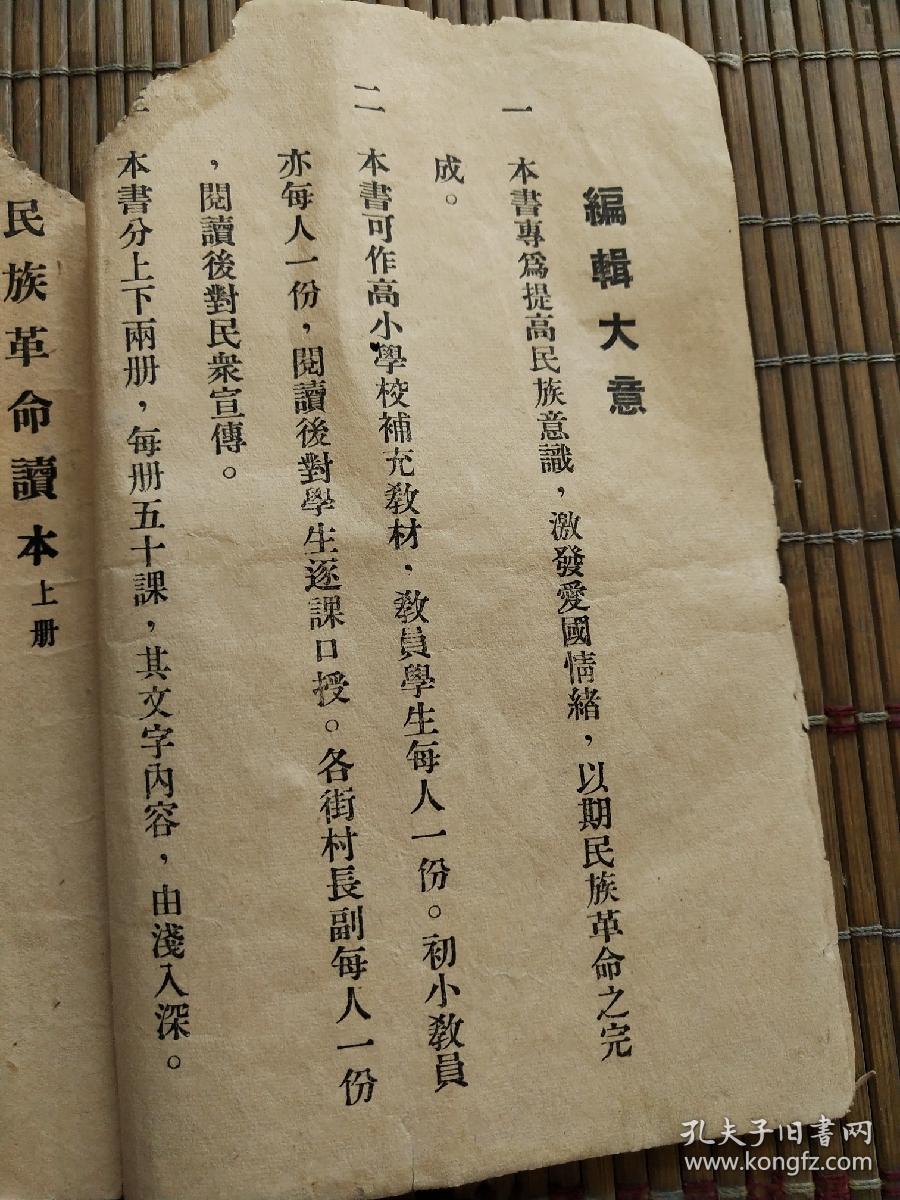 編輯大意
一　本書專爲提高民族意識，激發愛國情緒，以期民族革命之完
成。
二　本書可作高小學校補充敎材，敎員學生每人一份。初小敎員
亦每人一份，閱讀後對學生逐課口授。各街村長副每人一份
，閱讀後對民衆宣傳。
三　本書分上下兩册，每册五十課，其文字內容，由淺入深。
民族革命讀本上册
孔夫子旧书网
www.kongfz.com